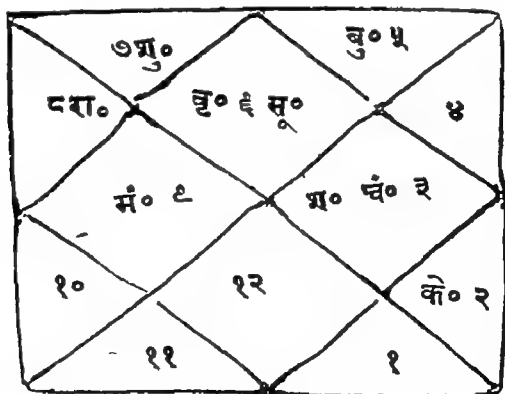 ७शु०
बु० ५
८रा०
वृ० ६ सू०
४
मं० ९
श० चं० ३
१०
१२
के० २
११
१